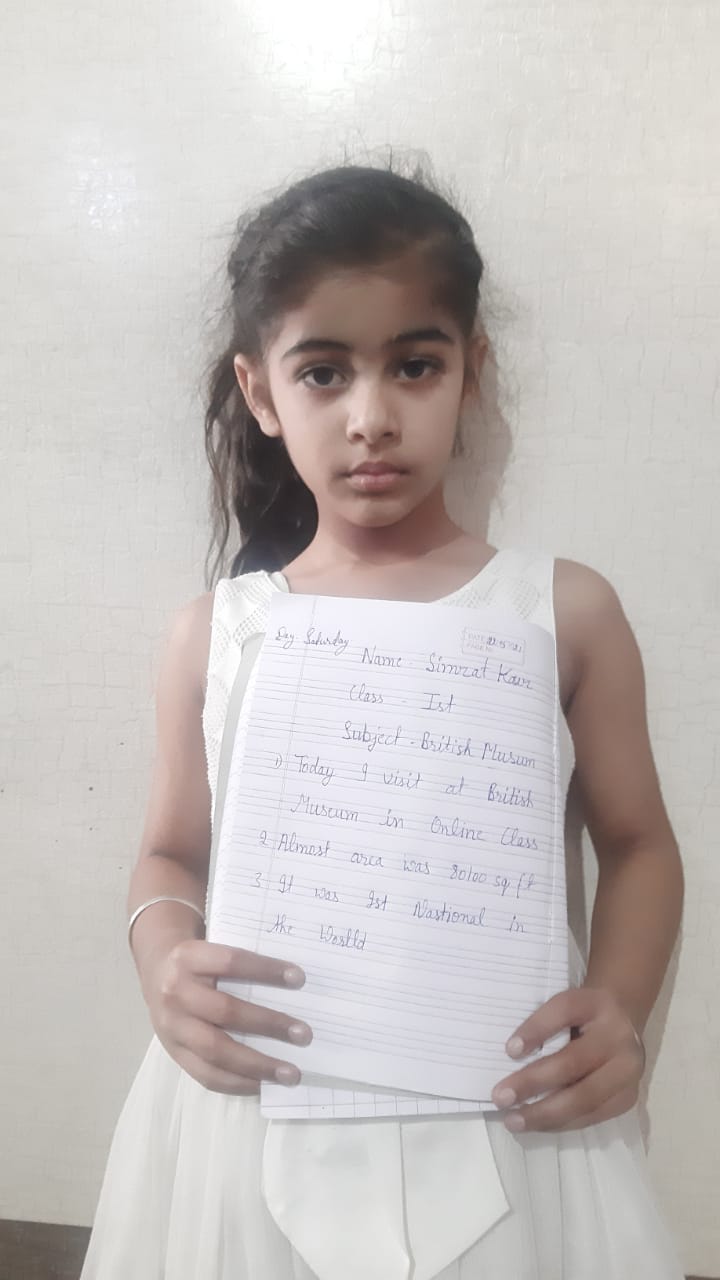 Day - Saturday
DATE: 22/5/21
PAGE No.
Name - Simrat Kaur
Class - Ist
Subject - British Musum
1) Today I visit at British
Museum in Online Class
2 Almost area was 80100 sq ft
3 It was Ist Nastional in
the Worlld